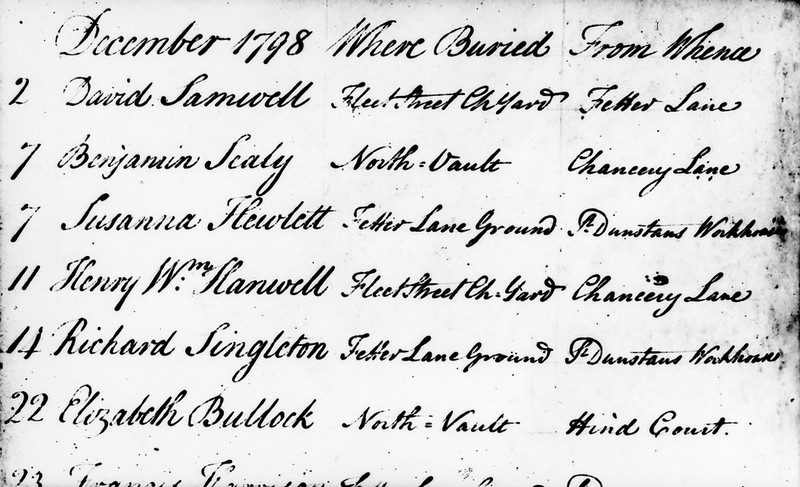 December 1798 Where Buried From Whence
2 David Samwell Fleet Street Ch: Yard Fetter Lane
7 Benjamin Sealy North = Vault Chancery Lane
7 Susanna Hewlett Fetter Lane Ground St Dunstans Workhouse
11 Henry Wm. Hanwell Fleet Street Ch: Yard Chancery Lane
14 Richard Singleton Fetter Lane Ground St Dunstans Workhouse
22 Elizabeth Bullock North = Vault Hind Court.
23 Francis